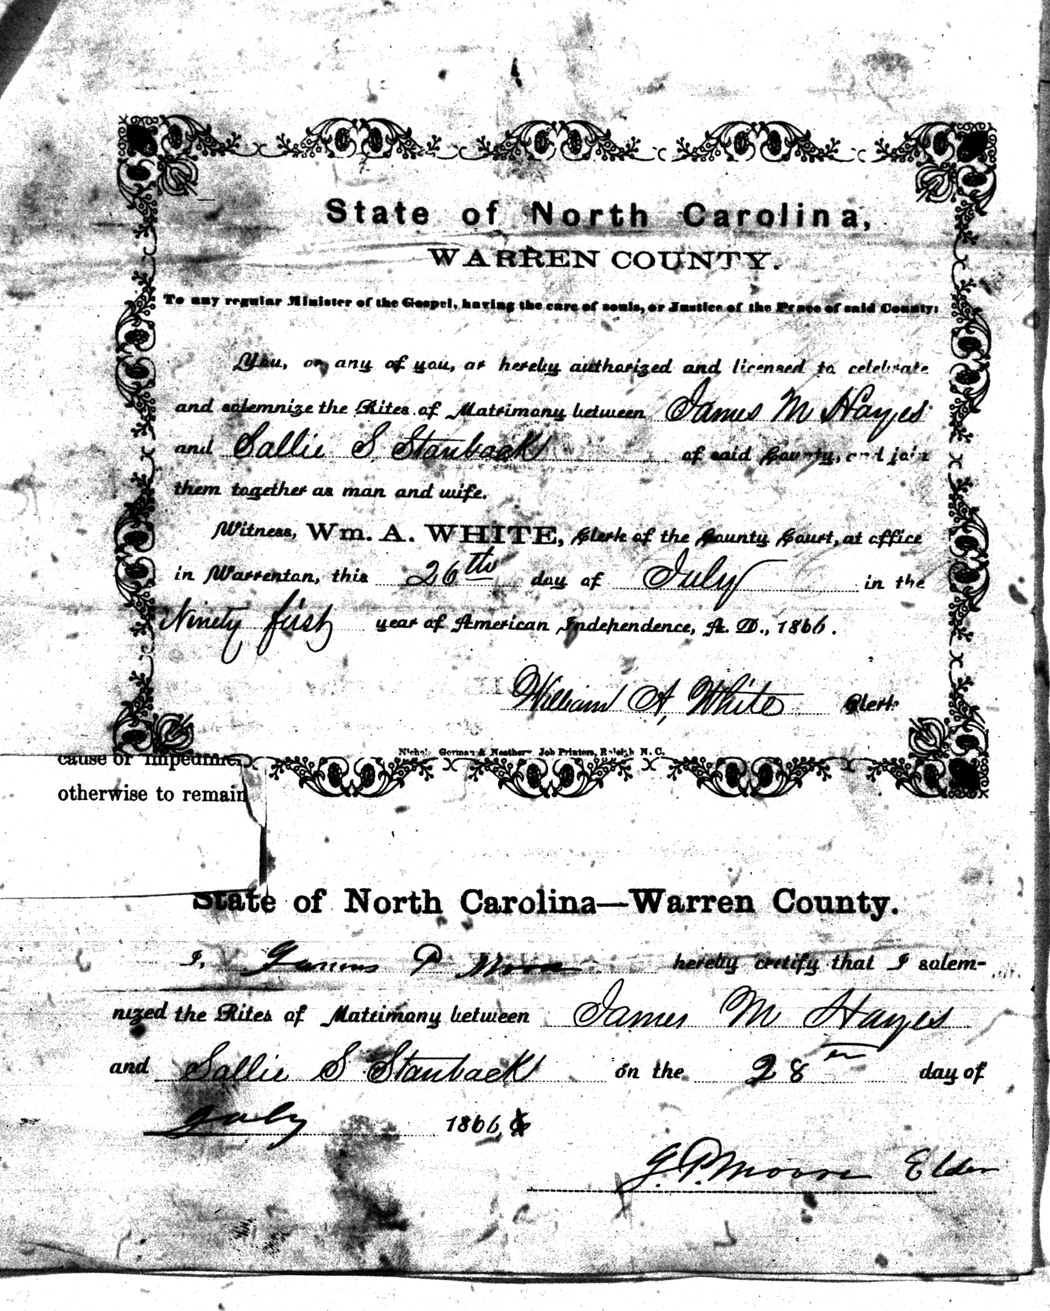 State of North Carolina,
WARREN COUNTY.
To any regular Minister of the Gospel, having the care of souls, or Justice of the Peace of said County:
You, or any of you, ar hereby authorized and licensed to celebrate
and solemnize the Rites of Matrimony between James M Hayes
and Sallie S Stanback of said County, and join
them together as man and wife.
Witness, Wm. A. WHITE, Clerk of the County Court, at office
in Warrenton, this 26th day of July in the
Ninety first year of American Independence, A. D., 1866.
William A, White Clerk
Gorman & Job Printers, Raleigh N. C.
cause or impedime
otherwise to remain
State of North Carolina—Warren County.
I, P Moore hereby certify that I solem-
nized the Rites of Matrimony between James M Hayes
and Sallie S Stanback on the 28 day of
July 1866
G. P. Moore Elder